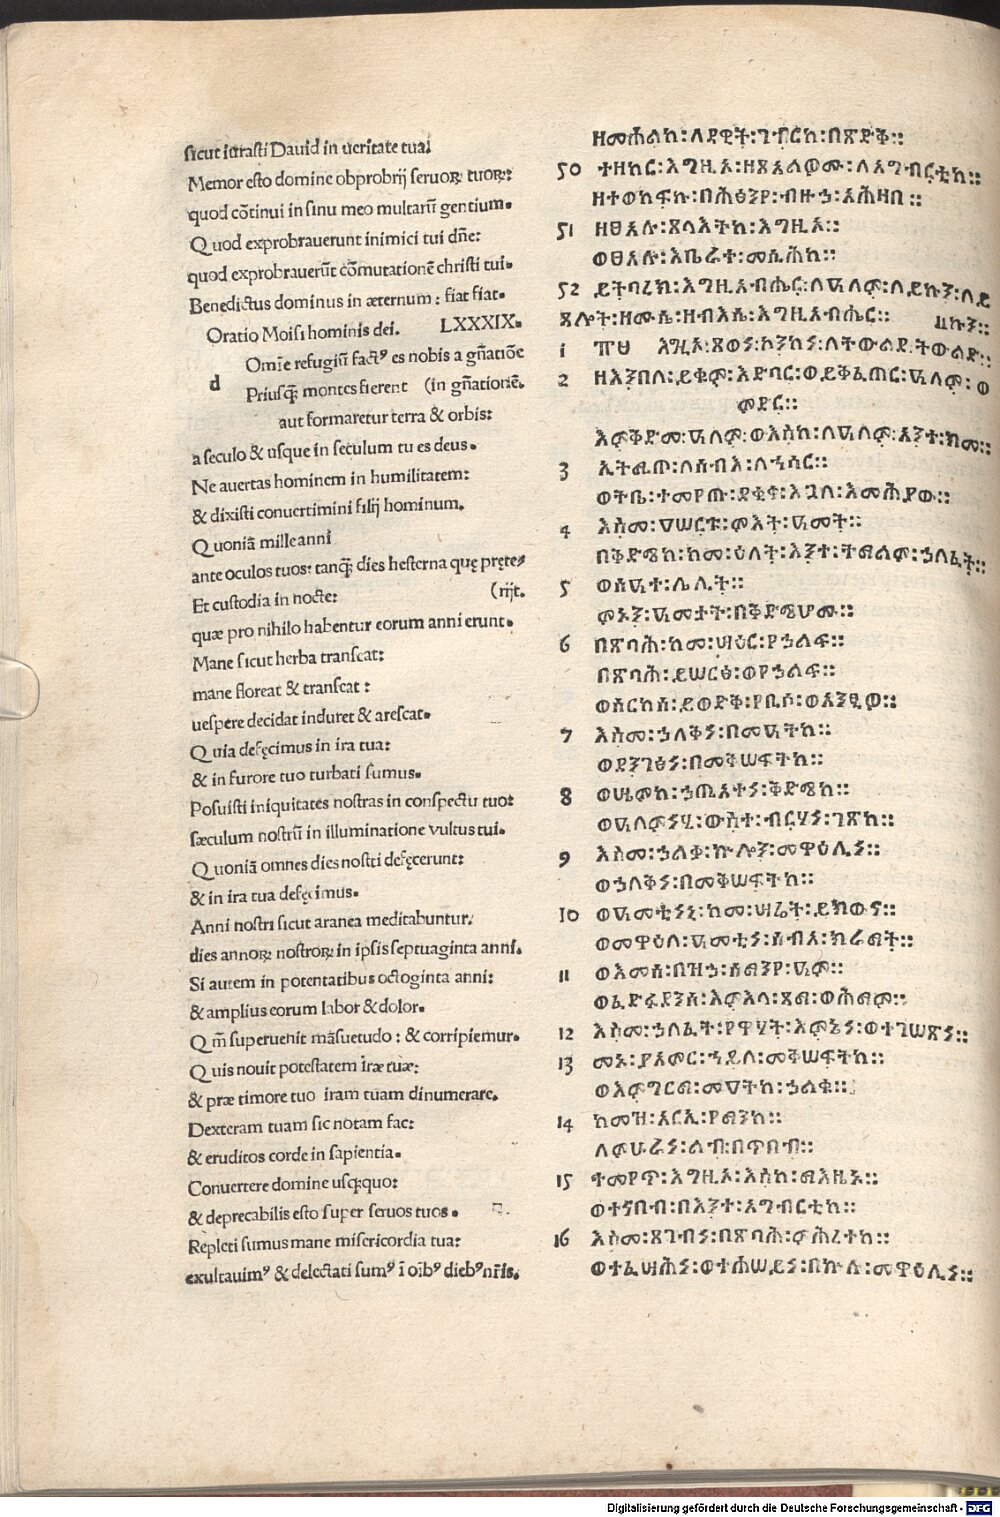 sicut iurasti Dauid in ueritate tua!
Memor esto domine obprobrij seruoꝝ tuoꝝ:
quod cōtinui in sinu meo multarū gentium.
Quod exprobrauerunt inimici tui dñe:
quod exprobrauerūt cōmutationē christi tui.
Benedictus dominus in æternum: fiat fiat.
Oratio Moisi hominis dei. LXXXIX.
d
Omīe refugiū factꝰ es nobis a gn̄atiōe
Priusq̄ montes fierent (in gn̄ationē.
aut formaretur terra & orbis:
a seculo & usque in seculum tu es deus.
Ne auertas hominem in humilitatem:
& dixisti conuertimini filij hominum.
Quoniā mille anni
ante oculos tuos: tanq̄ dies hesterna quę pręte
Et custodia in nocte: (rijt.
quæ pro nihilo habentur eorum anni erunt.
Mane sicut herba transeat:
mane floreat & transeat:
uespere decidat induret & arescat.
Quia defęcimus in ira tua:
& in furore tuo turbati sumus.
Posuisti iniquitates nostras in conspectu tuo:
sæculum nostrū in illuminatione vultus tui.
Quoniā omnes dies nostri defęcerunt:
& in ira tua defęcimus.
Anni nostri sicut aranea meditabuntur:
dies annoꝝ nostroꝝ in ipsis septuaginta anni.
Si autem in potentatibus octoginta anni:
& amplius eorum labor & dolor.
Qm̄ superuenit māsuetudo: & corripiemur.
Quis nouit potestatem iræ tuæ:
& præ timore tuo iram tuam dinumerare.
Dexteram tuam sic notam fac:
& eruditos corde in sapientia.
Conuertere domine usq̄quo:
& deprecabilis esto super seruos tuos.
Repleti sumus mane misericordia tua:
exultauimꝰ & delectati sumꝰ ī oībꝰ diebꝰ nr̄is.
ዘመሐልከ፡ለዳዊት፡ገብርከ፡በጽድቅ።
50 ተዘከር፡እግዚኦ፡ዘጸአልዎሙ፡ለአግብርቲከ።
ዘተወከፍኩ፡በሕፅንየ፡ብዙኃ፡አሕዛብ።
51 ዘፀአሉ፡ጸላእትከ፡እግዚኦ።
ወፀአሉ፡እቤራተ፡መሲሕከ።
52 ይትባረክ፡እግዚአብሔር፡ለዓለም፡ለይኩን፡ለይ
ጸሎት፡ዘሙሴ፡ዘብእሴ፡እግዚአብሔር። ኩን።
1 ፹፱ እግዚኦ፡ጸወነ፡ኮንከነ፡ለትውልደ፡ትውልድ።
2 ዘእንበለ፡ይቁም፡አድባር፡ወይቅፈጠር፡ዓለም፡ወ
ምድር።
እምቅድመ፡ዓለም፡ወእስከ፡ለዓለም፡አንተ፡ክመ።
3 ኢትሚጦ፡ለሰብእ፡ለኀሳር።
ወትቤ፡ተመየጡ፡ደቂቀ፡እጓለ፡እመሕያው።
4 እስመ፡፲፻ዓርቱ፡ምእት፡ዓመት።
በቅድሜከ፡ከመ፡ዕለት፡እንተ፡ትማልም፡ኃለፈት።
5 ወሰዓተ፡ሌሊት።
ምኑን፡ዓመታት፡በቅድሜሆሙ።
6 በጽባሕ፡ከመ፡ሣዕር፡የኃልፍ።
በጽባሕ፡ይሠርፅ፡ወየኃልፍ።
ወሰርከሰ፡ይወድቅ፡የቢሶ፡ወአንፂዎ።
7 እስመ፡ኃለቅነ፡በመዓትከ።
ወደንገፅነ፡በመቅሠፍትከ።
8 ወሤምከ፡ኃጢአተነ፡ቅድሜከ።
ወዓለምነሂ፡ውስተ፡ብርሃነ፡ገጽከ።
9 እስመ፡ኃልቀ፡ኵሎን፡መዋዕሊነ።
ወኃለቅነ፡በመቅሠፍትከ።
10 ወዓመቲነኒ፡ከመ፡ሣሬት፡ይከውና።
ወመዋዕለ፡ዓመቲነ፡ሰብአ፡ክራማት።
11 ወእመሰ፡በዝኃ፡ሰማንየ፡ዓም።
ወፈድፋደንሰ፡እምእላ፡ጻማ፡ወሕማም።
12 እስመ፡ኃለፈት፡የዋሃት፡እምኔነ፡ወተገሠጽነ።
13 መኑ፡ያአምር፡ኀይለ፡መቅሠፍትከ።
ወእምግርማ፡መዓትከ፡ኃልቁ።
14 ከመዝ፡አርኢ፡የማንከ።
ለምሁራነ፡ልብ፡በጥበብ።
15 ተመየጥ፡እግዚኦ፡እስከ፡ማእዜኑ።
ወተናበብ፡በእንተ፡አግብርቲከ።
16 እስመ፡ጸገብነ፡በጽባሕ፡ምሕረተከ።
ወተፈሣሕነ፡ወተሐሠይነ፡በኵሉ፡መዋዕሊነ።
Digitalisierung gefördert durch die Deutsche Forschungsgemeinschaft - DFG